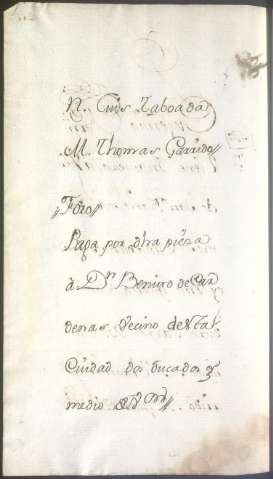 N. Luis Taboada
M. Thomas Garrido//
//Foro//
Paga por dha pieza
à Dn. Benito de Car
denas Vecino de esta
Ciudad dos ducados y
medio